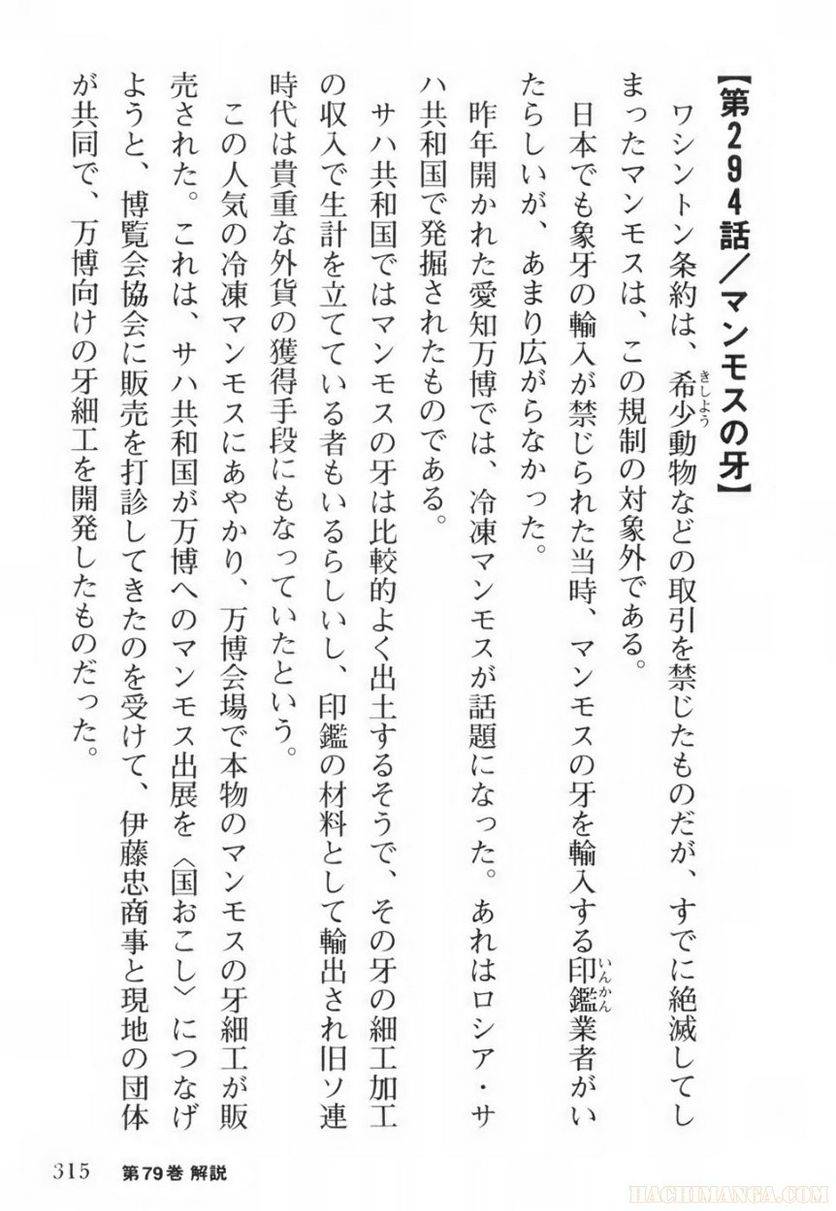 【第294話／マンモスの牙】
ワシントン条約は、希少動物などの取引を禁じたものだが、すでに絶滅してし
きしよう
まったマンモスは、この規制の対象外である。
日本でも象牙の輸入が禁じられた当時、マンモスの牙を輸入する印鑑業者がい
いんかん
たらしいが、あまり広がらなかった。
昨年開かれた愛知万博では、冷凍マンモスが話題になった。あれはロシア・サ
ハ共和国で発掘されたものである。
サハ共和国ではマンモスの牙は比較的よく出土するそうで、その牙の細工加工
の収入で生計を立てている者もいるらしいし、印鑑の材料として輸出され旧ソ連
時代は貴重な外貨の獲得手段にもなっていたという。
この人気の冷凍マンモスにあやかり、万博会場で本物のマンモスの牙細工が販
売された。これは、サハ共和国が万博へのマンモス出展を〈国おこし〉につなげ
ようと、博覧会協会に販売を打診してきたのを受けて、伊藤忠商事と現地の団体
が共同で、万博向けの牙細工を開発したものだった。
315 第79巻 解説
HACHIMANGA.COM